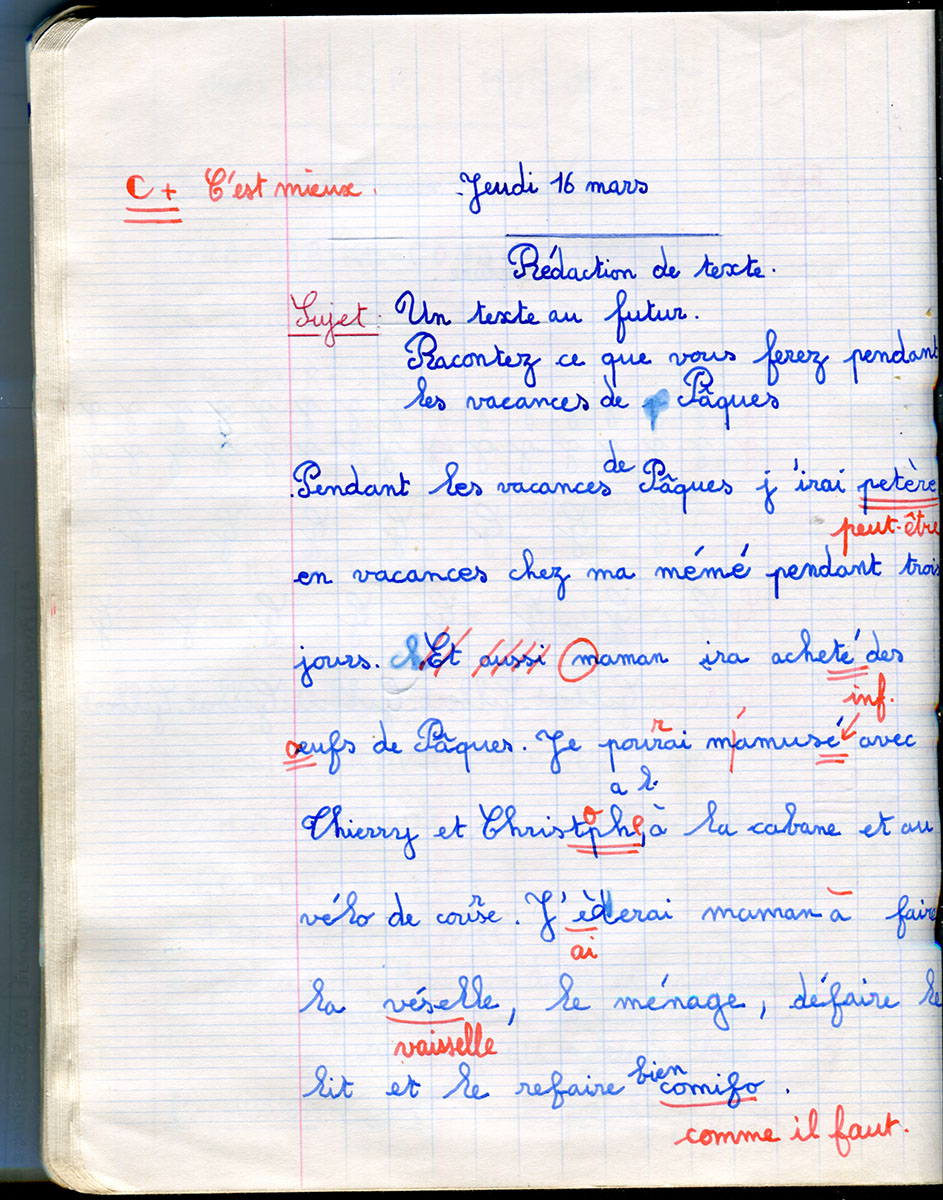 C+ C'est mieux. Jeudi 16 mars
Rédaction de texte.
Sujet : Un texte au futur.
Racontez ce que vous ferez pendant
les vacances de Pâques
de
Pendant les vacances Pâques j'irai petère
peut-être
en vacances chez ma mémé pendant trois
jours. Et aussi maman ira acheté des
inf.
oeufs de Pâques. Je pourrai m'amusé avec
a l.
Thierry et Christophe, à la cabane et au
vélo de course. J'èderai maman à faire
ai
la véselle, le ménage, défaire le
vaisselle
lit et le refaire bien comifo.
comme il faut.